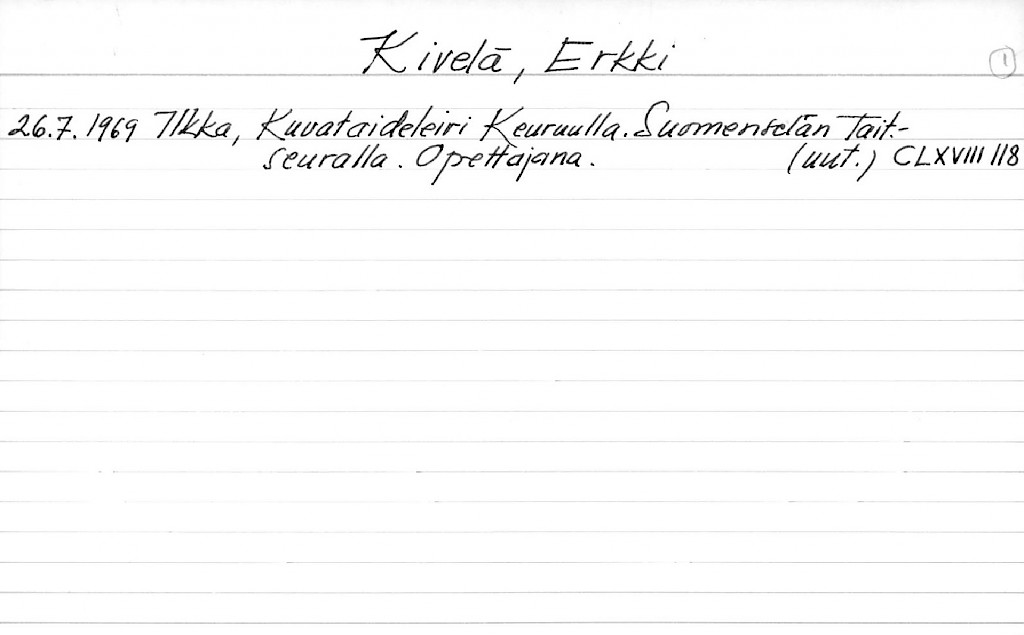 Kivelä, Erkki
1
26.7.1969 Ilkka, Kuvataideleiri Keuruulla. Suomenselän Tait.-
seuralla. Opettajana. (uut.) CLXVIII 118